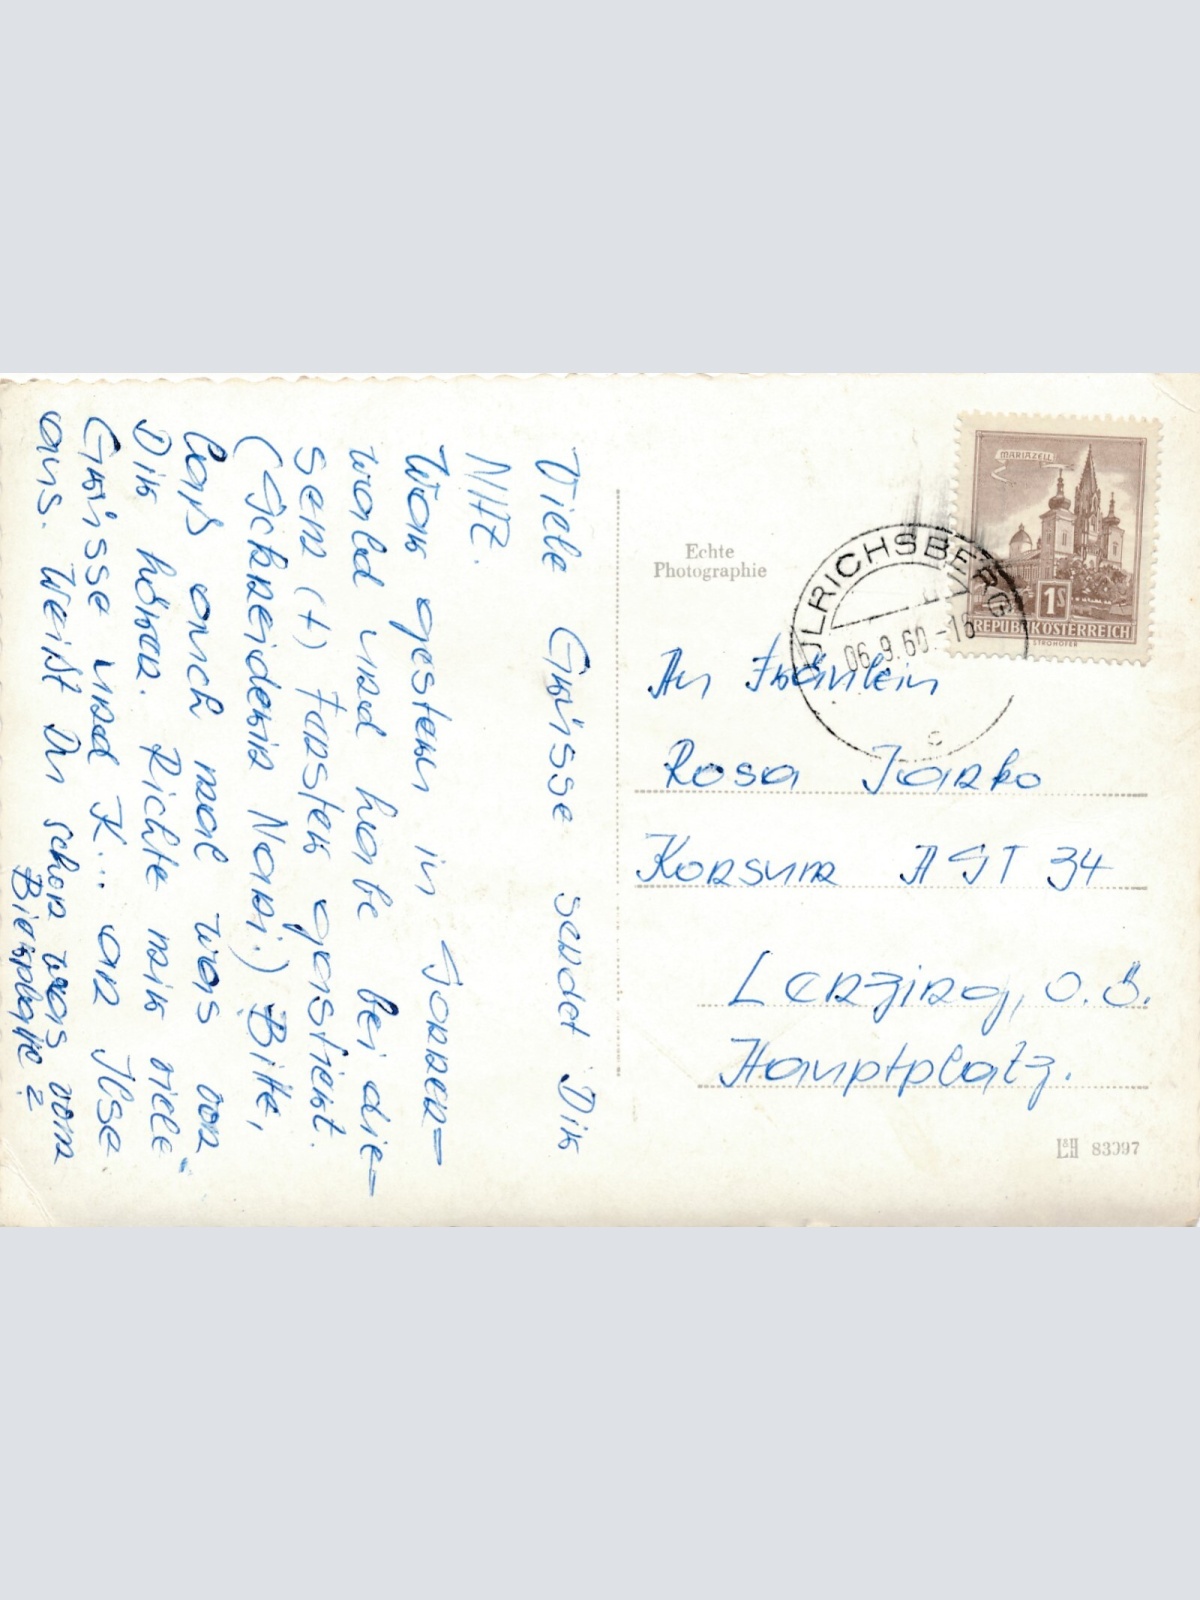 Viele Grüsse sendet Dir
NHZ.
War gestern in Sonnen=
wald und habe bei die=
sen (+) Fenster gastiert.
(Schneiderin Nani.) Bitte,
laß auch mal was von
Dir hören. Richte mir viele
Grüsse und K... an Ilse
aus. Weißt Du schon was vom
Echte
Photographie
MARIAZELL
1S
REPUBLIK ÖSTERREICH
ULRICHSBERG
06.9.60.-16
c
An Fräulein
Rosa Janko
Konsum AGT 34
Lenzing, O.Ö.
Hauptplatz.
L&H 83097